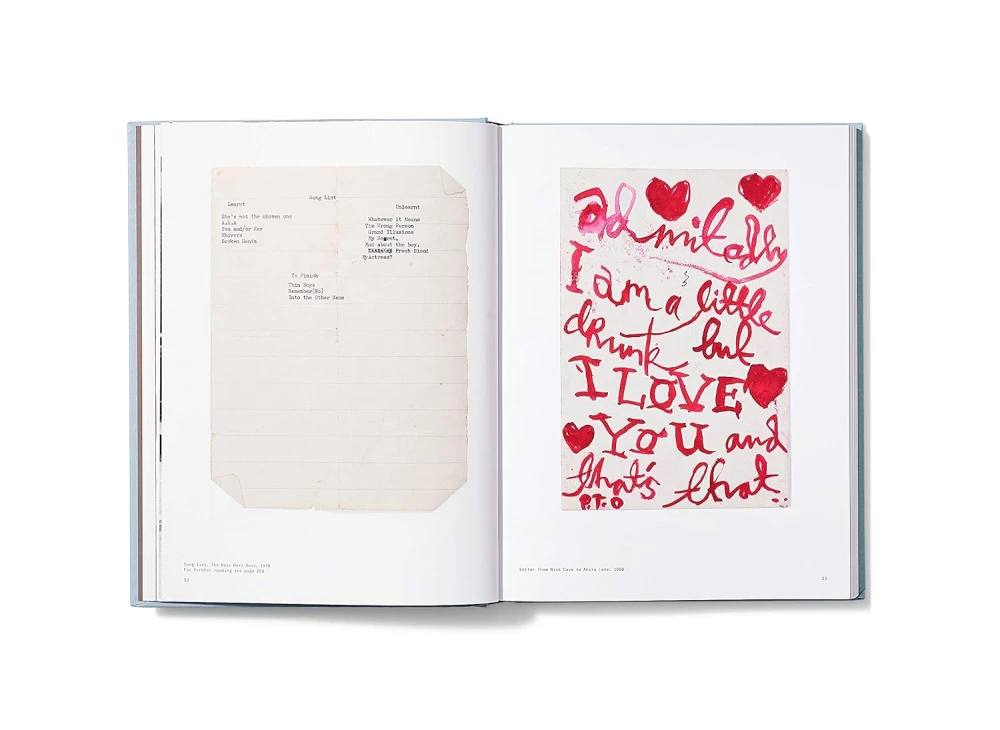 Song List
Learnt
She's not the chosen one
A.I.A
You and/or Her
Shivers
Broken Hands
Unlearnt
Whatever it Means
The Wrong Person
Grand Illusions
My Secret.
Mad about the boy.
Fresh Blood
MyActress?
To Finish
Thin Boys
Remember(No)
Into the Other Room
Song List, The Boys Next Door, 1978
For further reading see page 258
32
admitedly
I am a little
drunk but
I LOVE
YOU and
that's that..
P.T.O
Letter from Nick Cave to Anita Lane, 1980
33